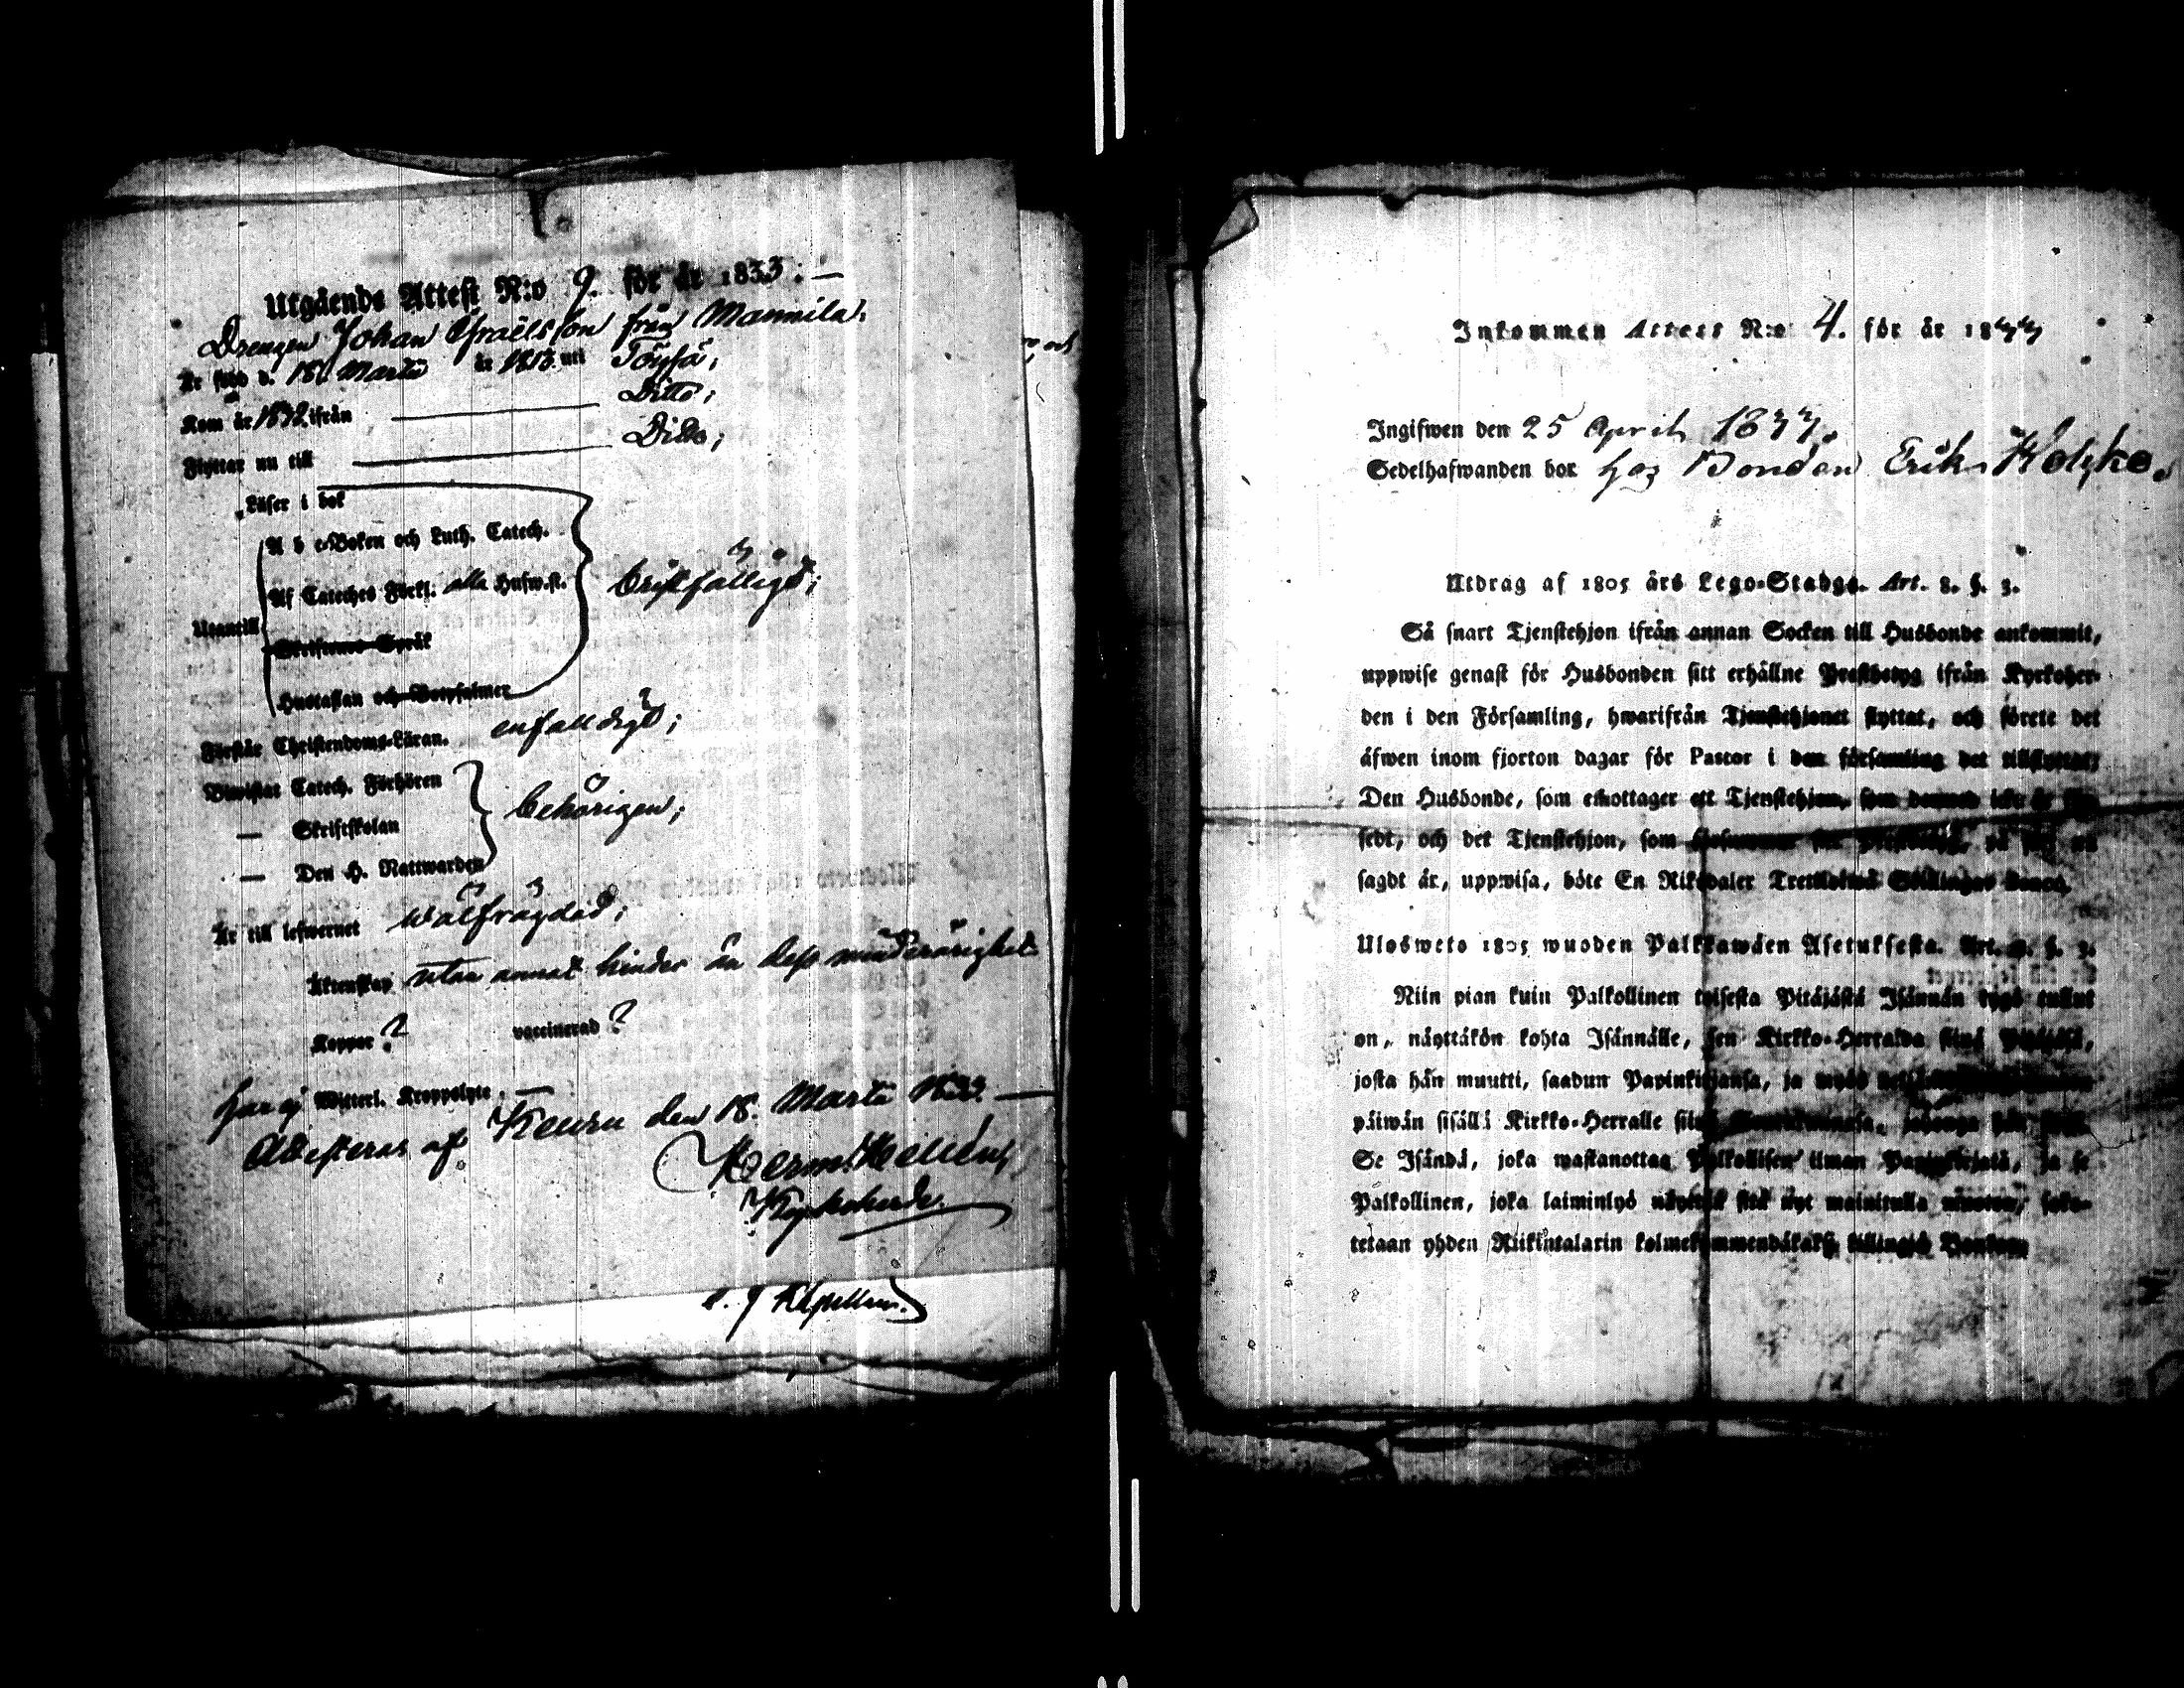 Utgående Attest N:o 9. för år 1833. —
Drengen Johan Israëlsson från Mannila.
Är född d. 18 Martii år 1813 uti Töysä;
Kom år 1832 ifrån — Ditto;
Flyttar nu till — Ditto;
Läser i bok
A b c-Boken och Luth. Catech.
Af Cateches Förkl: alla Hufw.st. bristfälligt;
Utantill
Skriftenes Språk
Hustaflan och Botpsalmer
Förstår Christendoms-Läran. enfalldigt;
Biwistat Catech. Förhören
— Skriftskolan behörigen;
— Den H. Nattwarden
Är till lefwernet wälfrägdad;
Äktenskap utan annat hinder än dess minderårighet
Koppor ? vaccinerad ?
har ej Witterl. Kroppslyte. —
Attesteras af Keuru den 18. Martii 1833. —
Herm. Hellén
Kyrkoherde.
Inkommen Attest N:o 4. för år 1833
Ingifwen den 25 April 1833.
Sedelhafwanden bor hos Bonden Erik
Utdrag af 1805 års Lego-Stadga. Art. 8. §. 3.
Så snart Tjenstehjon ifrån annan Socken till Husbonde ankommit,
uppwise genast för Husbonden sitt erhållne Prestbetyg ifrån Kyrkoher-
den i den Församling, hwarifrån Tjenstehjonet flyttat, och förete det
äfwen inom fjorton dagar för Pastor i den församling det tillflyttat;
Den Husbonde, som emottager ett Tjenstehjon, som
sedt, och det Tjenstehjon, som
sagdt är, uppwisa, böte En Riksdaler Trettiotwå Skillingar Banco.
Ulosweto 1805 wuoden Palkkawäen Asetuksesta. Art. 8. §. 3.
Niin pian kuin Palkollinen toisesta Pitäjästä Isännän tygö tullut
on, näyttäkön kohta Isännälle, sen Kirkko-Herralda siinä Pitäjäsä,
josta hän muutti, saadun Papinkirjansa, ja myös
päiwän sisällä Kirkko-Herralle siinä
Se Isändä, joka wastanottaa Palkollisen ilman Papinkirjata, ja se
Palkollinen, joka laiminlyö näyttää sitä nyt mainitulla muoton, sako-
tetaan yhden Riikintalarin kolmekymmendäkaksi killingiä Bankosa